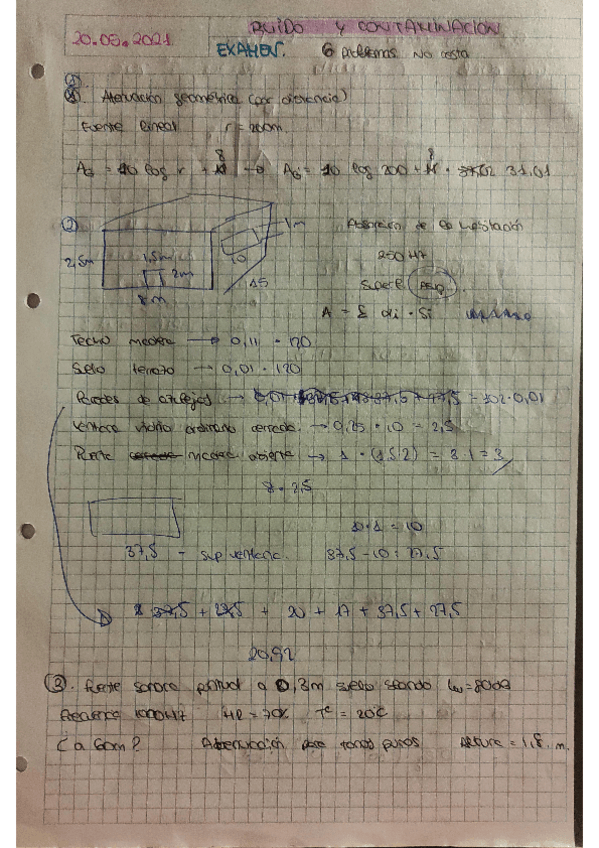 20.05.2021
RUIDO Y CONTAMINACIÓN
EXAMEN. 6 problemas No resta
① Atenuación geométrica (por diferencia)
Fuente lineal r = 200m.
AG = 10 log r + 8 → AG = 10 log 200 + 8 = 31.01
②
2,5m 1,5m 2m 8m 10 1m 15
Absorción de la habitación
250 Hz
superf.
A = Σ αi · Si
Techo madera → 0,11 · 120
Suelo terrazo → 0.01 · 120
Paredes de azulejos → = 102 · 0,01
Ventana vidrio ordinario cerrada. → 0,25 · 10 = 2,5
Puerta madera abierta → 1 · (1.5·2) = 3·1 = 3
8 · 2,5
10·1 = 10
37,5 - sup ventana. 37,5 - 10 = 27,5
+ 20 + 17 + 37,5 + 27,5
20,92
③. Fuente sonora puntual a 0,3m suelo Lw = 80dB
Frecuencia 1000Hz HR = 70% Tª = 20ºC
¿a 60m? Atenuación para tonos puros Altura = 1,8 m.